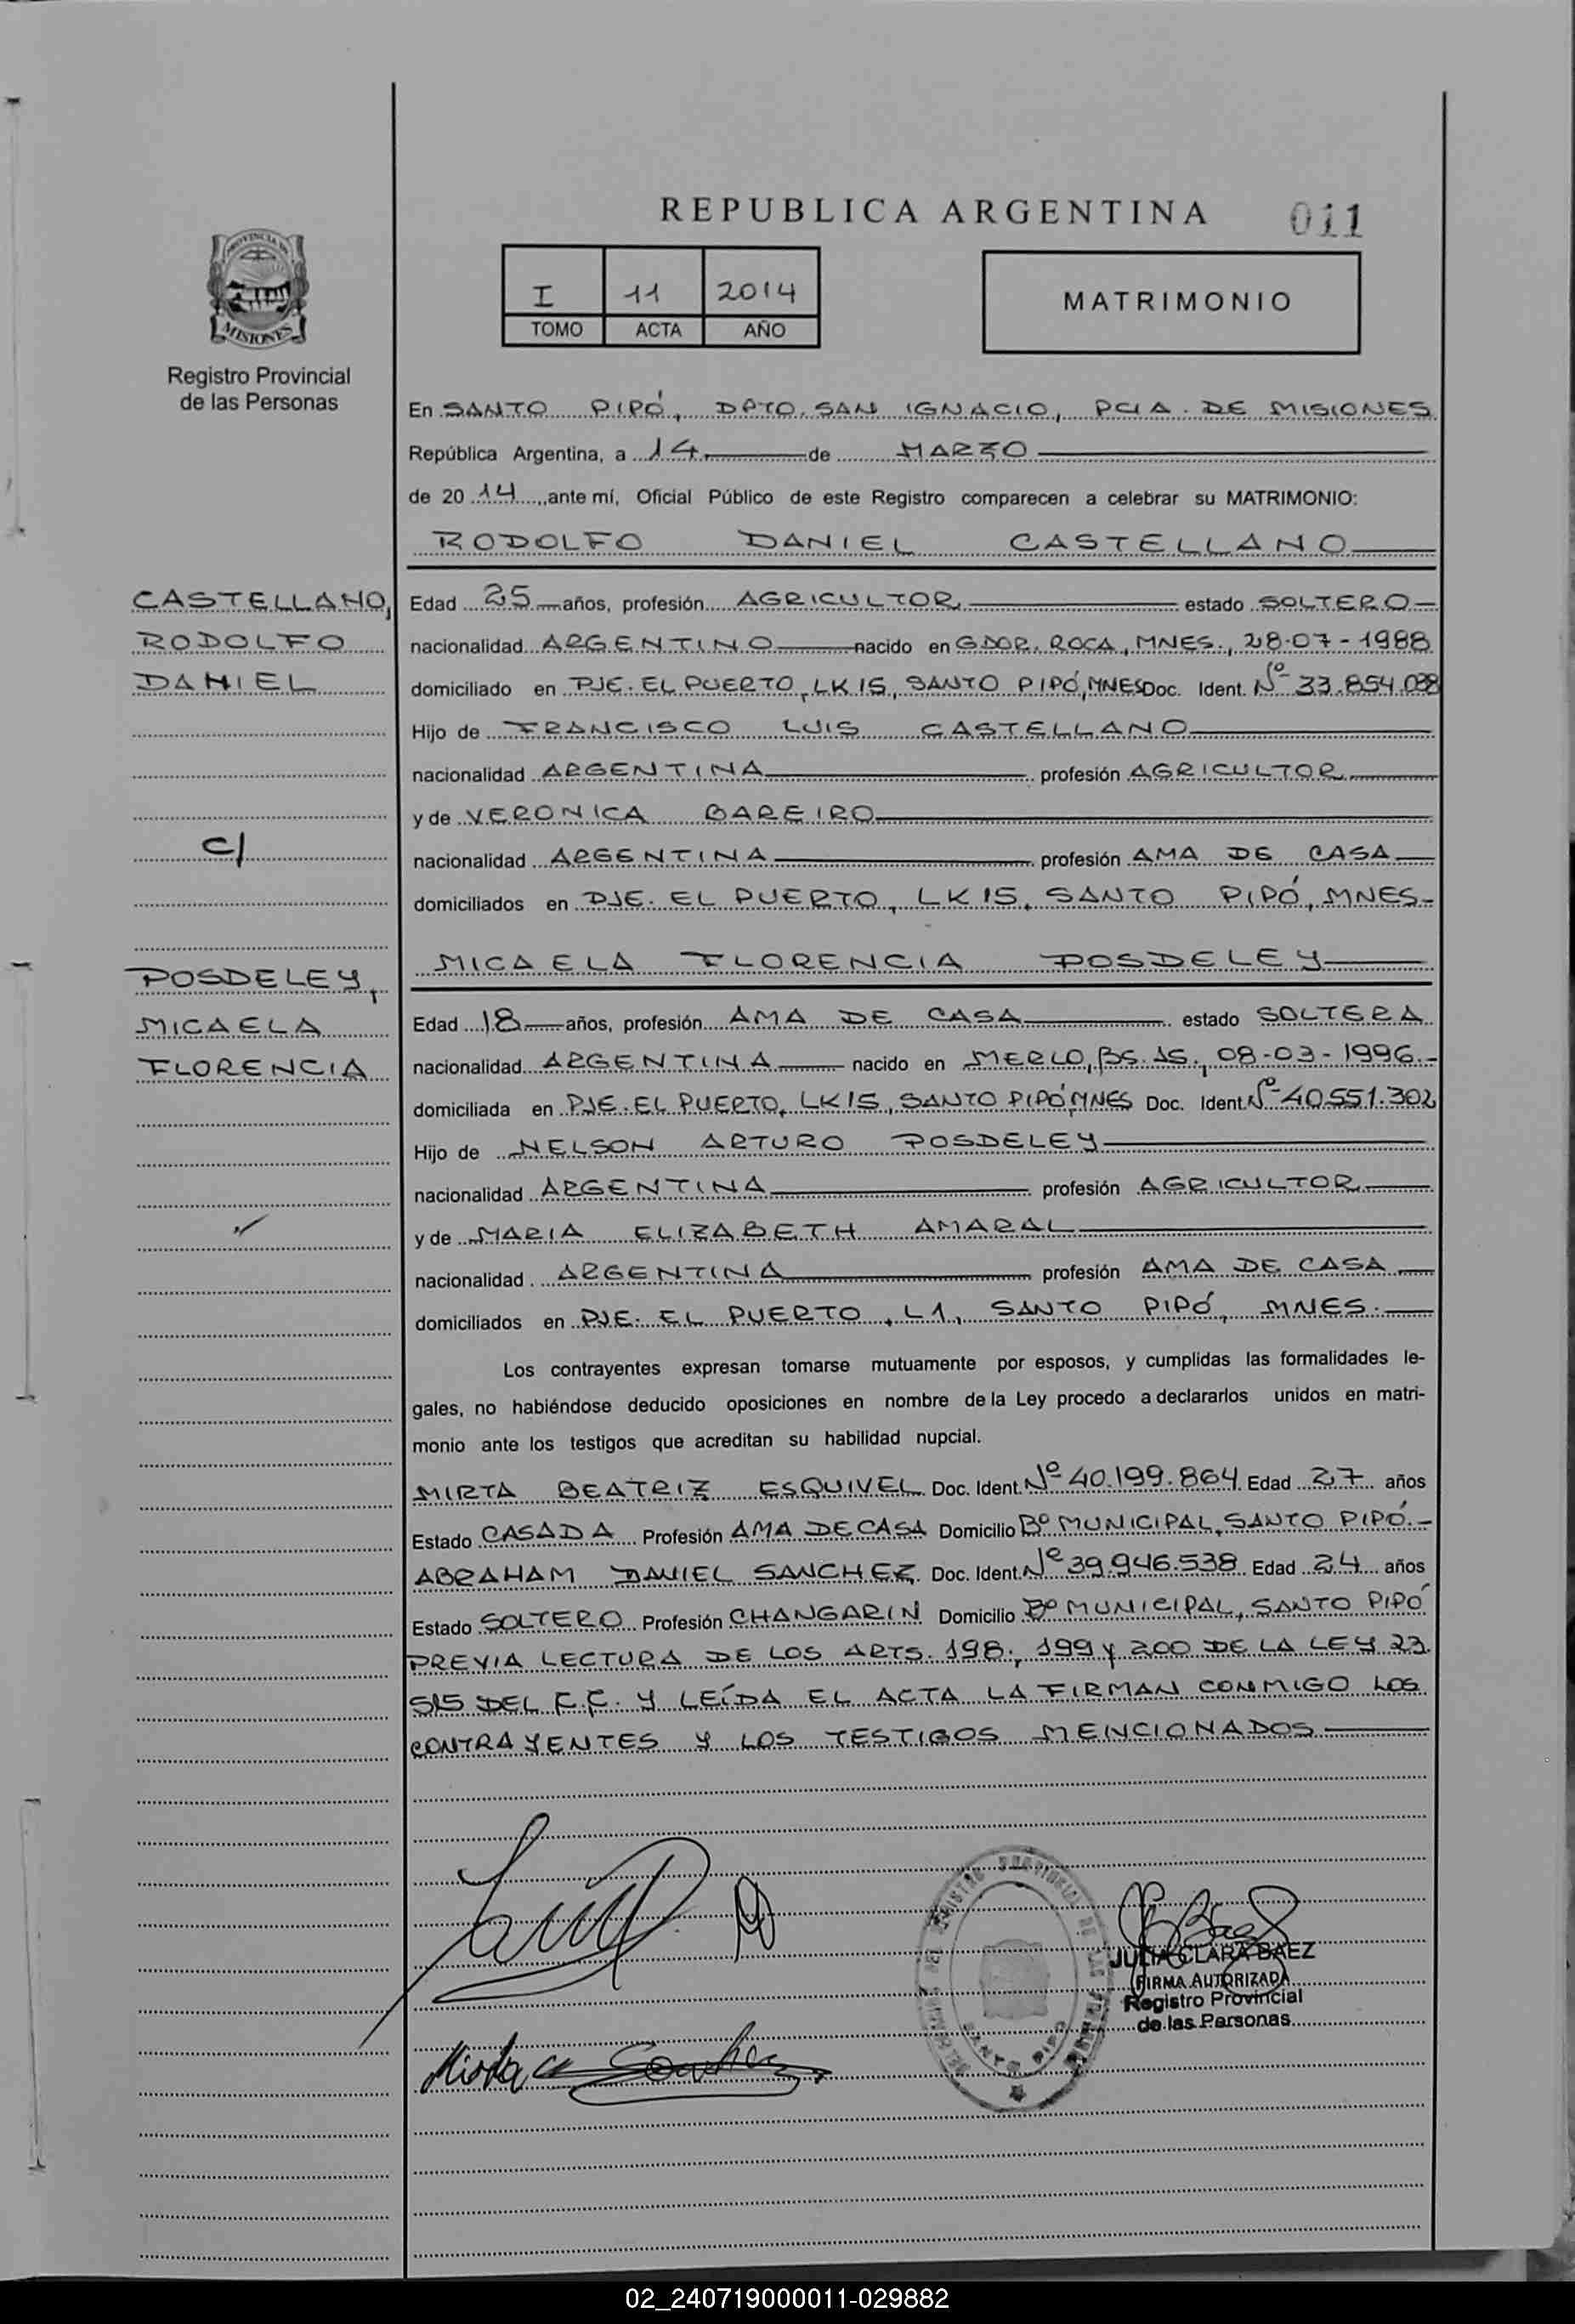 REPUBLICA ARGENTINA 011
PROVINCIA DE
MISIONES
Registro Provincial
de las Personas
I 11 2014
TOMO ACTA AÑO
MATRIMONIO
En SANTO PIPÓ, DPTO. SAN IGNACIO, PCIA. DE MISIONES
República Argentina, a 14 de MARZO
de 20 14, ante mí, Oficial Público de este Registro comparecen a celebrar su MATRIMONIO:
RODOLFO DANIEL CASTELLANO
CASTELLANO,
RODOLFO
DANIEL
c/
POSDELEY,
MICAELA
FLORENCIA
Edad 25 años, profesión AGRICULTOR estado SOLTERO
nacionalidad ARGENTINO nacido en GDOR. ROCA, MNES., 28-07-1988
domiciliado en PJE. EL PUERTO, LK15, SANTO PIPÓ, MNES Doc. Ident. Nº 33.854.088
Hijo de FRANCISCO LUIS CASTELLANO
nacionalidad ARGENTINA profesión AGRICULTOR
y de VERONICA BAREIRO
nacionalidad ARGENTINA profesión AMA DE CASA
domiciliados en PJE. EL PUERTO, LK15, SANTO PIPÓ, MNES-
MICAELA FLORENCIA POSDELEY
Edad 18 años, profesión AMA DE CASA estado SOLTERA
nacionalidad ARGENTINA nacido en MERLO, BS. AS., 08-03-1996.-
domiciliada en PJE. EL PUERTO, LK15, SANTO PIPÓ, MNES Doc. Ident. Nº 40.551.302
Hijo de NELSON ARTURO POSDELEY
nacionalidad ARGENTINA profesión AGRICULTOR
y de MARIA ELIZABETH AMARAL
nacionalidad ARGENTINA profesión AMA DE CASA
domiciliados en PJE. EL PUERTO, L1, SANTO PIPÓ, MNES.
Los contrayentes expresan tomarse mutuamente por esposos, y cumplidas las formalidades le-
gales, no habiéndose deducido oposiciones en nombre de la Ley procedo a declararlos unidos en matri-
monio ante los testigos que acreditan su habilidad nupcial.
MIRTA BEATRIZ ESQUIVEL Doc. Ident. Nº 40.199.864 Edad 27 años
Estado CASADA Profesión AMA DE CASA Domicilio Bº MUNICIPAL, SANTO PIPÓ.-
ABRAHAM DANIEL SANCHEZ Doc. Ident. Nº 39.946.538 Edad 24 años
Estado SOLTERO Profesión CHANGARIN Domicilio Bº MUNICIPAL, SANTO PIPÓ
PREVIA LECTURA DE LOS ARTS. 198, 199 y 200 DE LA LEY 23.
515 DEL C.C. Y LEÍDA EL ACTA LA FIRMAN CONMIGO LOS
CONTRAYENTES Y LOS TESTIGOS MENCIONADOS
JULIA CLARA BAEZ
FIRMA AUTORIZADA
Registro Provincial
de las Personas
Mirta Sanchez
02_240719000011-029882